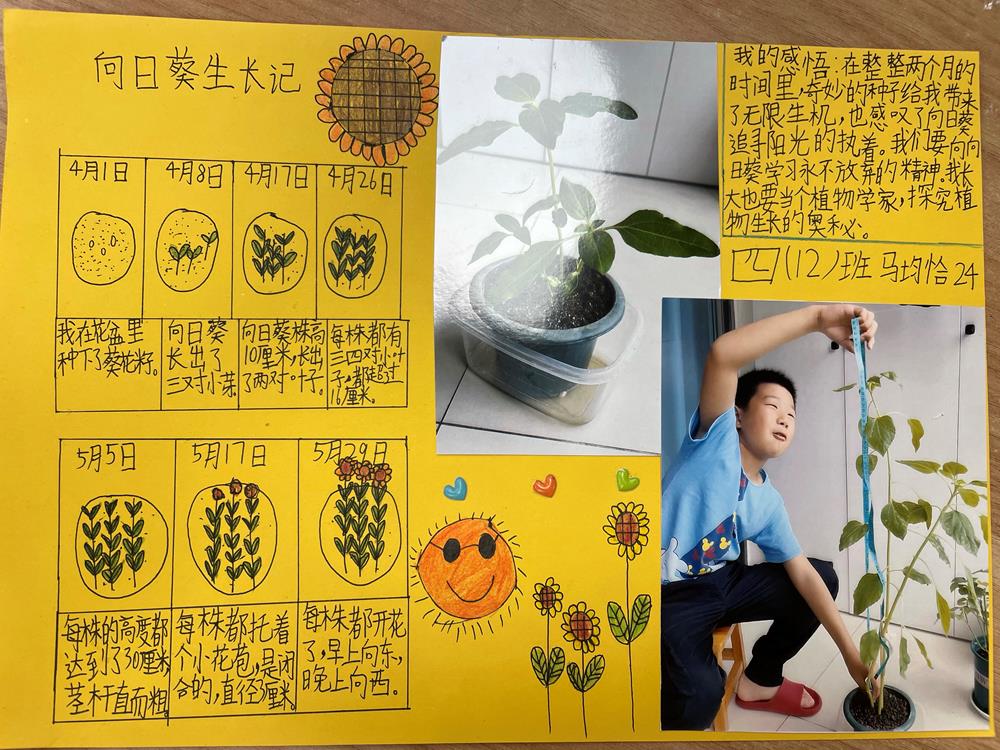 向日葵生长记
4月1日
4月8日
4月17日
4月26日
我在花盆里
种下了葵花籽。
向日葵
长出了
三对小芽
向日葵株高
10厘米,长出
了两对叶子。
每株都有
三四对小叶
子,都超过
16厘米。
5月5日
5月17日
5月29日
每株的高度都
达到了30厘米,
茎杆直而粗。
每株都托着
个小花苞,是闭
合的,直径3厘米。
每株都开花
了,早上向东,
晚上向西。
我的感悟:在整整两个月的
时间里,奇妙的种子给我带来
了无限生机,也感叹了向日葵
追寻阳光的执着。我们要向向
日葵学习永不放弃的精神。我长
大也要当个植物学家,探究植
物生长的奥秘。
四(12)班 马均恰 24